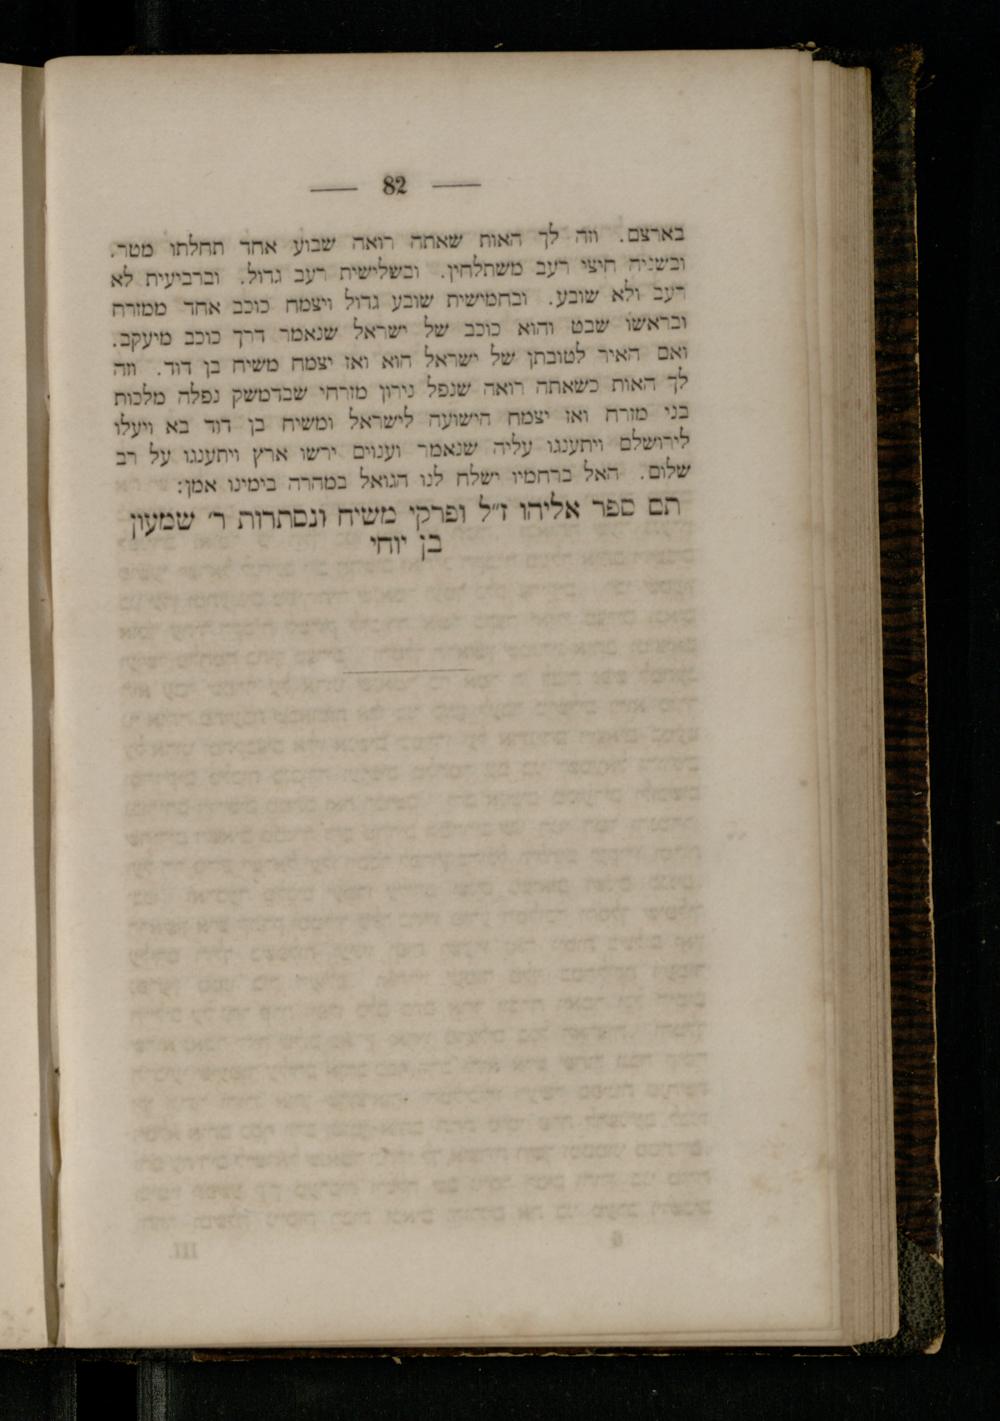 — 82 —
בארצם. וזה לך האות שאתה רואה שבוע אחד תחלתו מטר.
ובשניה חיצי רעב משתלחין. ובשלישית רעב גדול. וברביעית לא
רעב ולא שובע. ובחמישית שובע גדול ויצמח כוכב אחד ממזרח
ובראשו שבט והוא כוכב של ישראל שנאמר דרך כוכב מיעקב.
ואם האיר לטובתן של ישראל הוא ואז יצמח משיח בן דוד. וזה
לך האות כשאתה רואה שנפל נירון מזרחי שבדמשק נפלה מלכות
בני מזרח ואז יצמח הישועה לישראל ומשיח בן דוד בא ויעלו
לירושלם ויתענגו עליה שנאמר וענוים ירשו ארץ ויתענגו על רב
שלום. האל ברחמיו ישלח לנו הגואל במהרה בימינו אמן:
תם ספר אליהו ז״ל ופרקי משיח ונסתרות ר׳ שמעון
בן יוחי